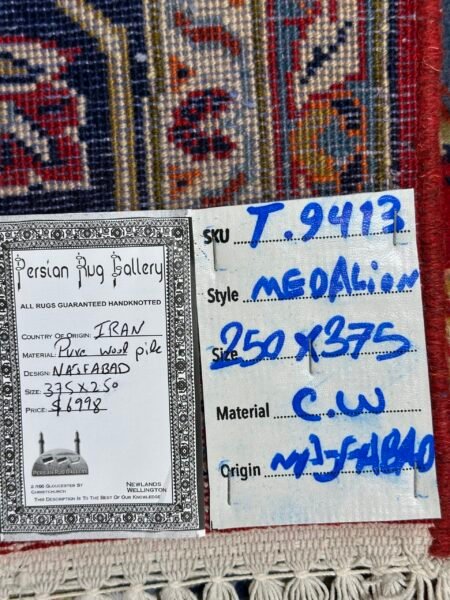 Persian Rug Gallery
ALL RUGS GUARANTEED HANDKNOTTED
COUNTRY OF ORIGIN: IRAN
MATERIAL: Pure wool pile
DESIGN: NAJFABAD
SIZE: 375 X 250
PRICE: $6998
PERSIAN RUG GALLERY
2 /166 GLOUCESTER ST
CHRISTCHURCH
NEWLANDS
WELLINGTON
THIS DESCRIPTION IS TO THE BEST OF OUR KNOWLEDGE
SKU T.9413
Style MEDALION
Size 250 X 375
Material C.W
Origin